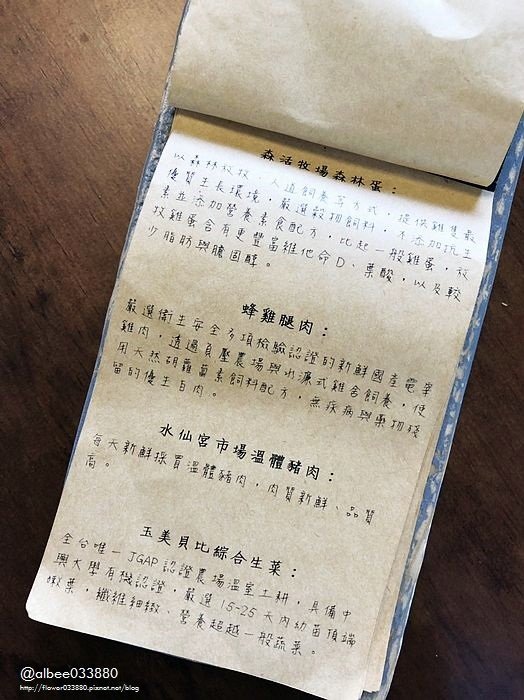 森活牧場森林蛋：
以森林放牧、人道飼養等方式，提供雞隻最
優質生長環境，嚴選穀物飼料，不添加抗生
素並添加營養素食配方，比起一般雞蛋，放
牧雞蛋含有更豐富維他命D、葉酸，以及較
少脂肪與膽固醇。
蜂雞腿肉：
嚴選衛生安全多項檢驗認證的新鮮國產電宰
雞肉，透過負壓農場與水濂式雞舍飼養，使
用天然胡蘿蔔素飼料配方，無疾病與藥物殘
留的優生白肉。
水仙宮市場溫體豬肉：
每天新鮮採買溫體豬肉，肉質新鮮、品質
高。
玉美貝比綜合生菜：
全台唯一JGAP認證農場溫室土耕，具備中
興大學有機認證，嚴選15-25天內幼苗頂端
嫩葉，纖維細緻、營養超越一般蔬菜。
@albee033880
http://flower033880.pixnet.net/blog